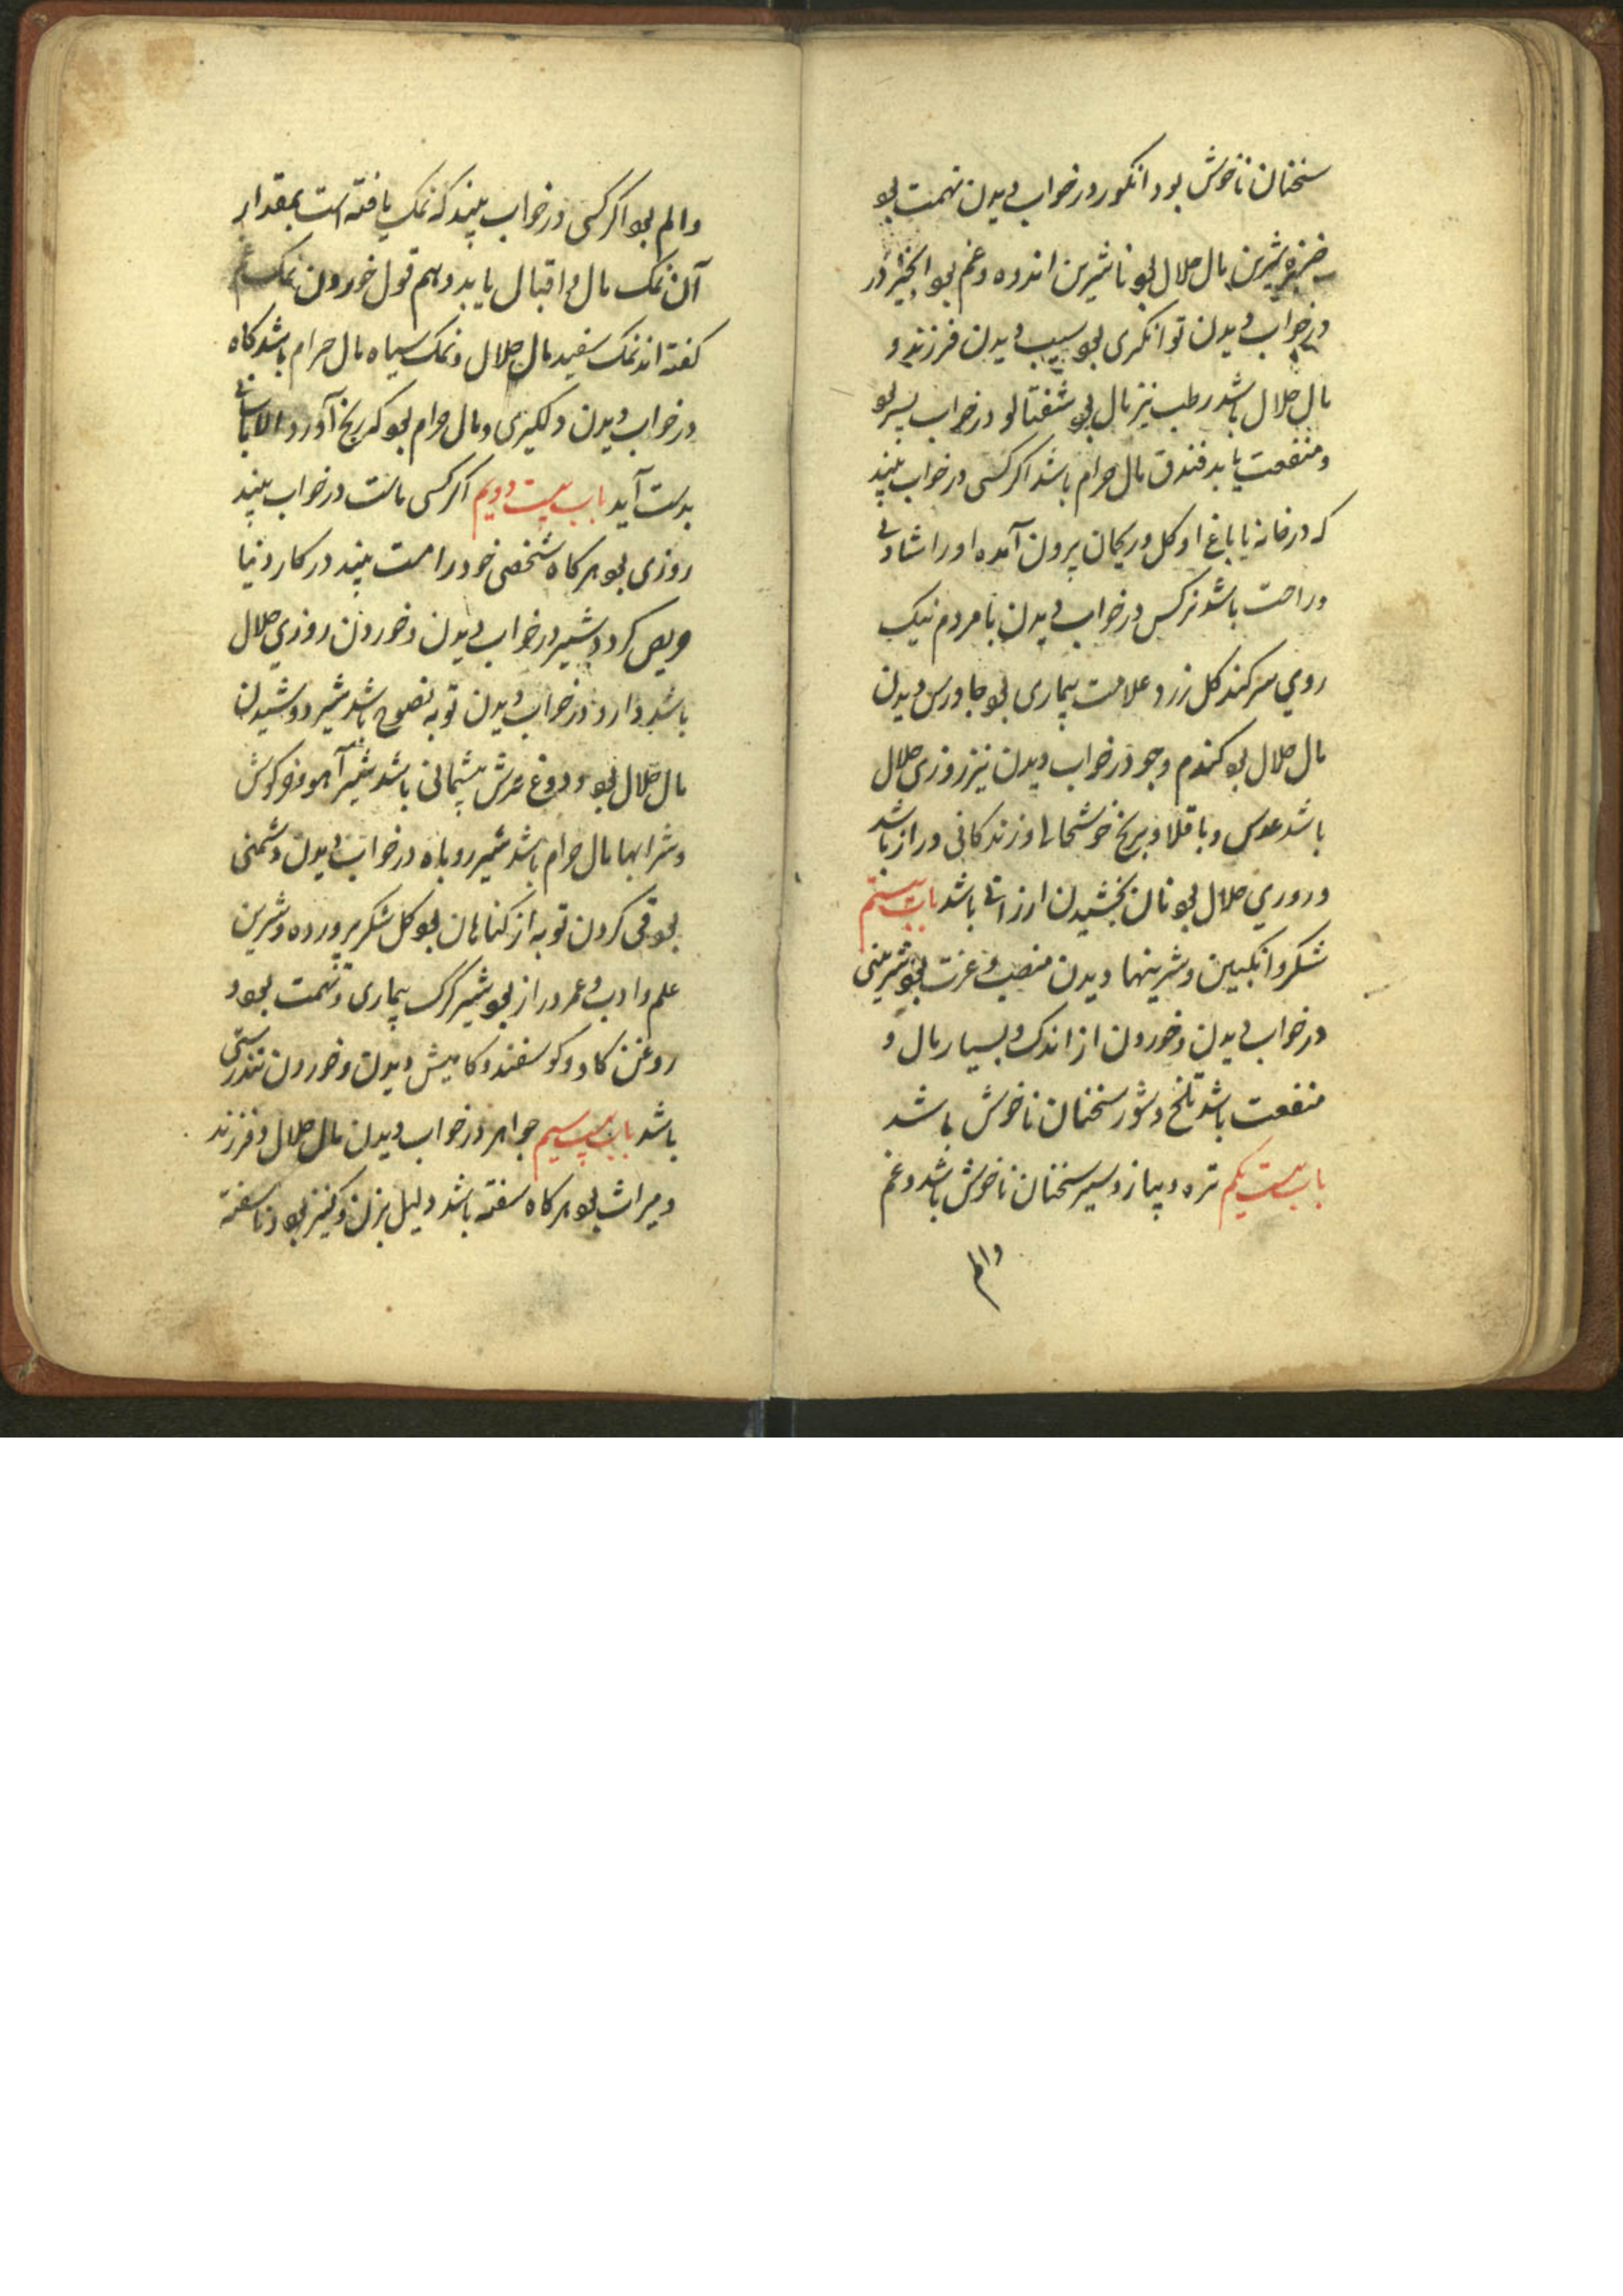 سخنان ناخوش بود انکور در خواب دیدن تهمت بو
خربزه شیرین مال حلال بو ناشیرین اندوه و غم بو انجیر در
در خواب دیدن توانکری بو سیب دیدن فرزند و
مال حلال باشد رطب نیز مال بو شفتالو در خواب پسر بو
و منفعت یابد فندق مال حرام باشد اکر کسی در خواب بیند
که در خانه یا باغ او کل و ریحان بیرون آمده او را شادی
و راحت باشد نرکس در خواب دیدن با مردم نیک
روی سر کند کل زرد علامت بیماری بو جاورس دیدن
مال حلال بو کندم و جو در خواب دیدن نیز روزی حلال
باشد عدس و باقلا و برنج خوشحالی و زندکانی دراز باشد
و روزی حلال بو نان بخشیدن ارزانی باشد باب بیستم
شکر و انکبین و شرینیها دیدن منصب و عزت بو شرینی
در خواب دیدن و خوردن از اندک و بسیار مال و
منفعت باشد تلخ و شور سخنان ناخوش باشد
باب بیست یکم تره و پیاز و سیر سخنان ناخوش باشد و غم
والم
والم بو اکر کسی در خواب بیند که نمک یافته است بمقدار
آن نمک مال و اقبال یابد و بهم قول خوردن نمک غم
کفته اند نمک سفید مال حلال و نمک سیاه مال حرام باشد کاه
در خواب دیدن دلکیری و مال حرام بو که رنج آورد الا بآسانی
بدست آید باب بیست دویم اکر کسی ماست در خواب بیند
روزی بو هرکاه شخصی خود را مست بیند در کار دنیا
حریص کردد شیر در خواب دیدن و خوردن روزی حلال
باشد دارو در خواب دیدن توبه نصوح باشد شیر دوشیدن
مال حلال بو و دوغ ترش پشیمانی باشد شیر آهو و خرکوش
و شرابها مال حرام باشد شیر روباه در خواب دیدن دشمنی
بو قی کردن توبه از کناهان بو کل شکر پرورده و شرین
علم و ادب و عمر دراز بو شیر کرک بیماری و تهمت بود و
روغن کاو و کوسفند و کامیش دیدن و خوردن تندرستی
باشد باب بیست سیم جواهر در خواب دیدن مال حلال و فرزند
و میراث بو هرکاه سفته باشد دلیل بزن و کنیز بود ناسفته